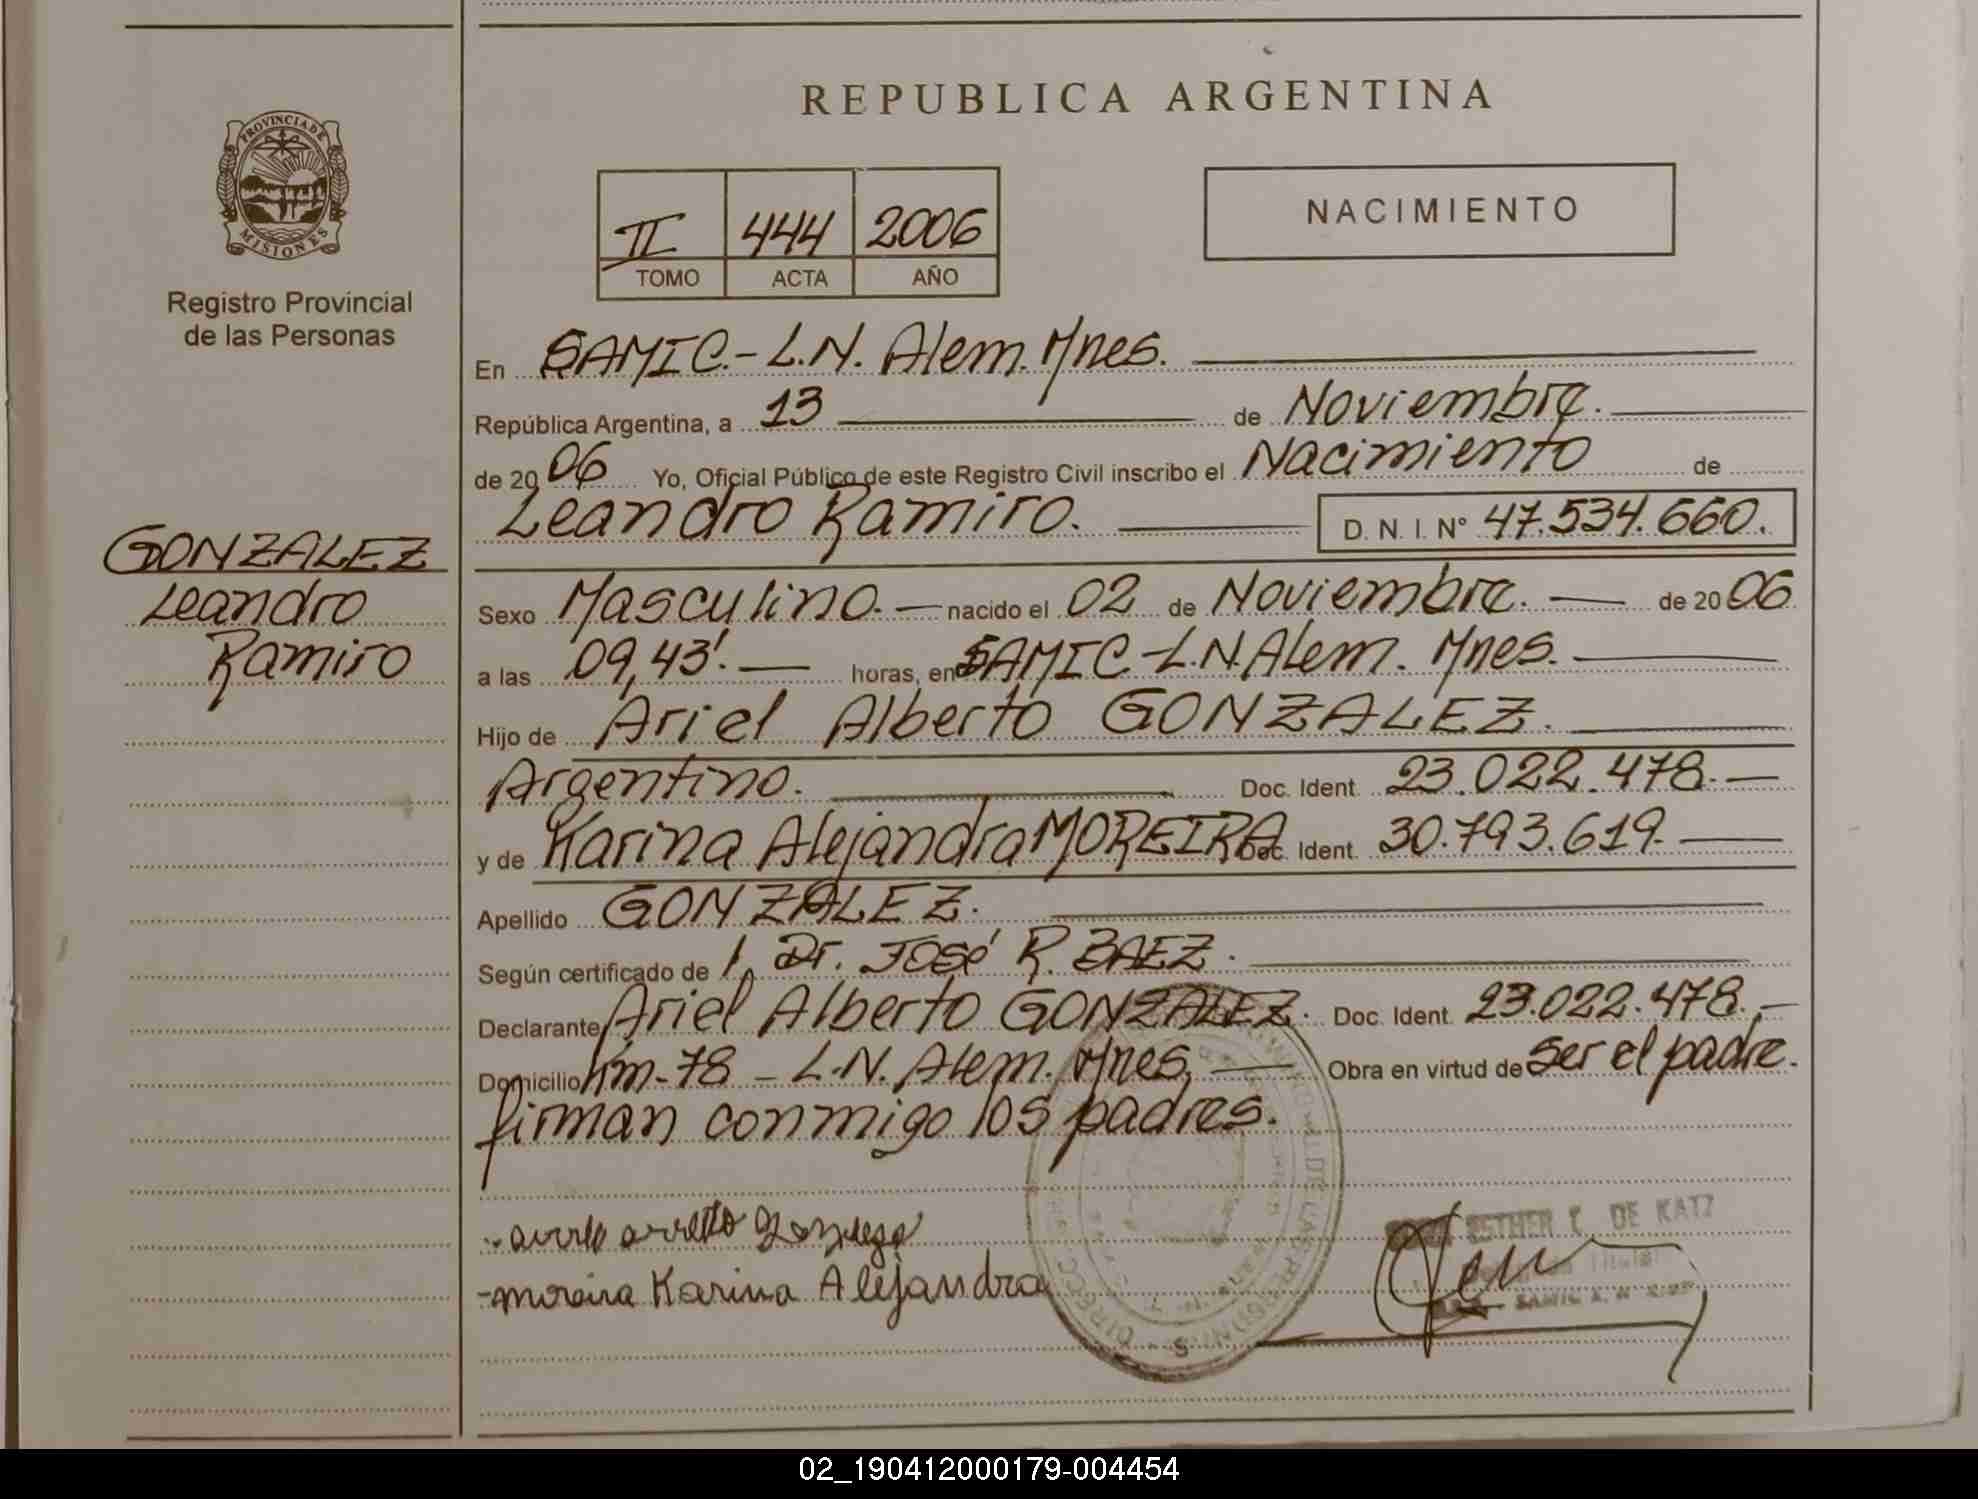 REPUBLICA ARGENTINA
PROVINCIA DE
MISIONES
Registro Provincial
de las Personas
NACIMIENTO
II 444 2006
TOMO ACTA AÑO
En SAMIC.- L.N. Alem. Mnes.
República Argentina, a 13 de Noviembre.
de 2006 Yo, Oficial Público de este Registro Civil inscribo el Nacimiento de
Leandro Ramiro. D. N. I. N° 47.534.660.
GONZALEZ
Leandro
Ramiro
Sexo Masculino.- nacido el 02 de Noviembre. - de 2006
a las 09,43'. - horas, en SAMIC - L.N. Alem. Mnes.
Hijo de Ariel Alberto GONZALEZ.
Argentino. Doc. Ident. 23.022.478.-
y de Karina Alejandra MOREIRA Doc. Ident. 30.793.619.-
Apellido GONZALEZ.
Según certificado de Dr. José R. BAEZ.
Declarante Ariel Alberto GONZALEZ. Doc. Ident. 23.022.478.-
Domicilio Km-78 - L.N. Alem. Mnes. - Obra en virtud de ser el padre.
firman conmigo los padres.
-moreira Karina Alejandra
ESTHER DE KATZ
02_190412000179-004454